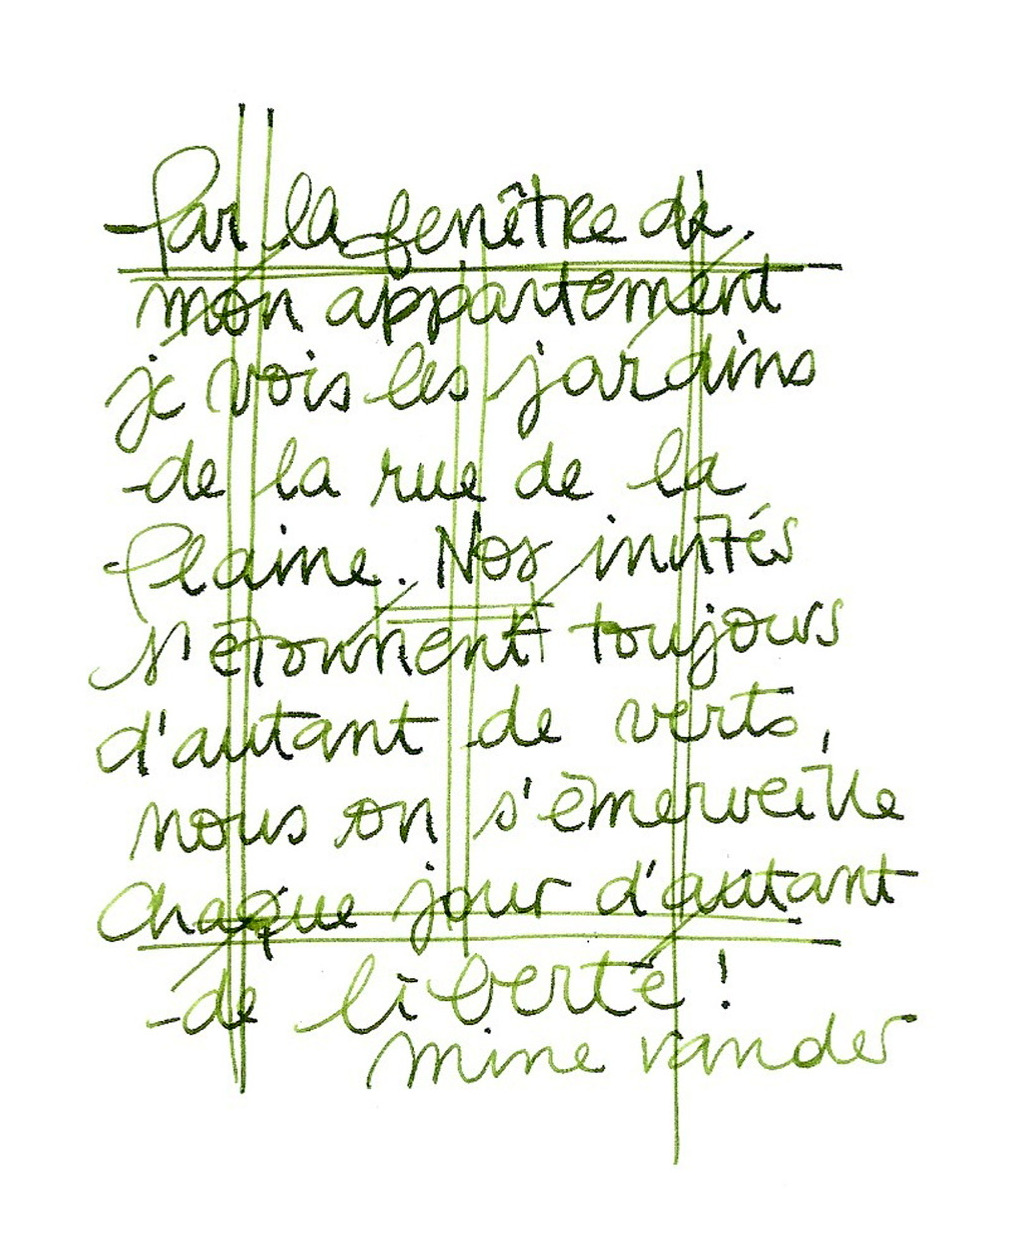 Par la fenêtre de
mon appartement
je vois les jardins
de la rue de la
Plaine. Nos invités
s'étonnent toujours
d'autant de verts,
nous on s'émerveille
chaque jour d'autant
de liberté !
mine vander